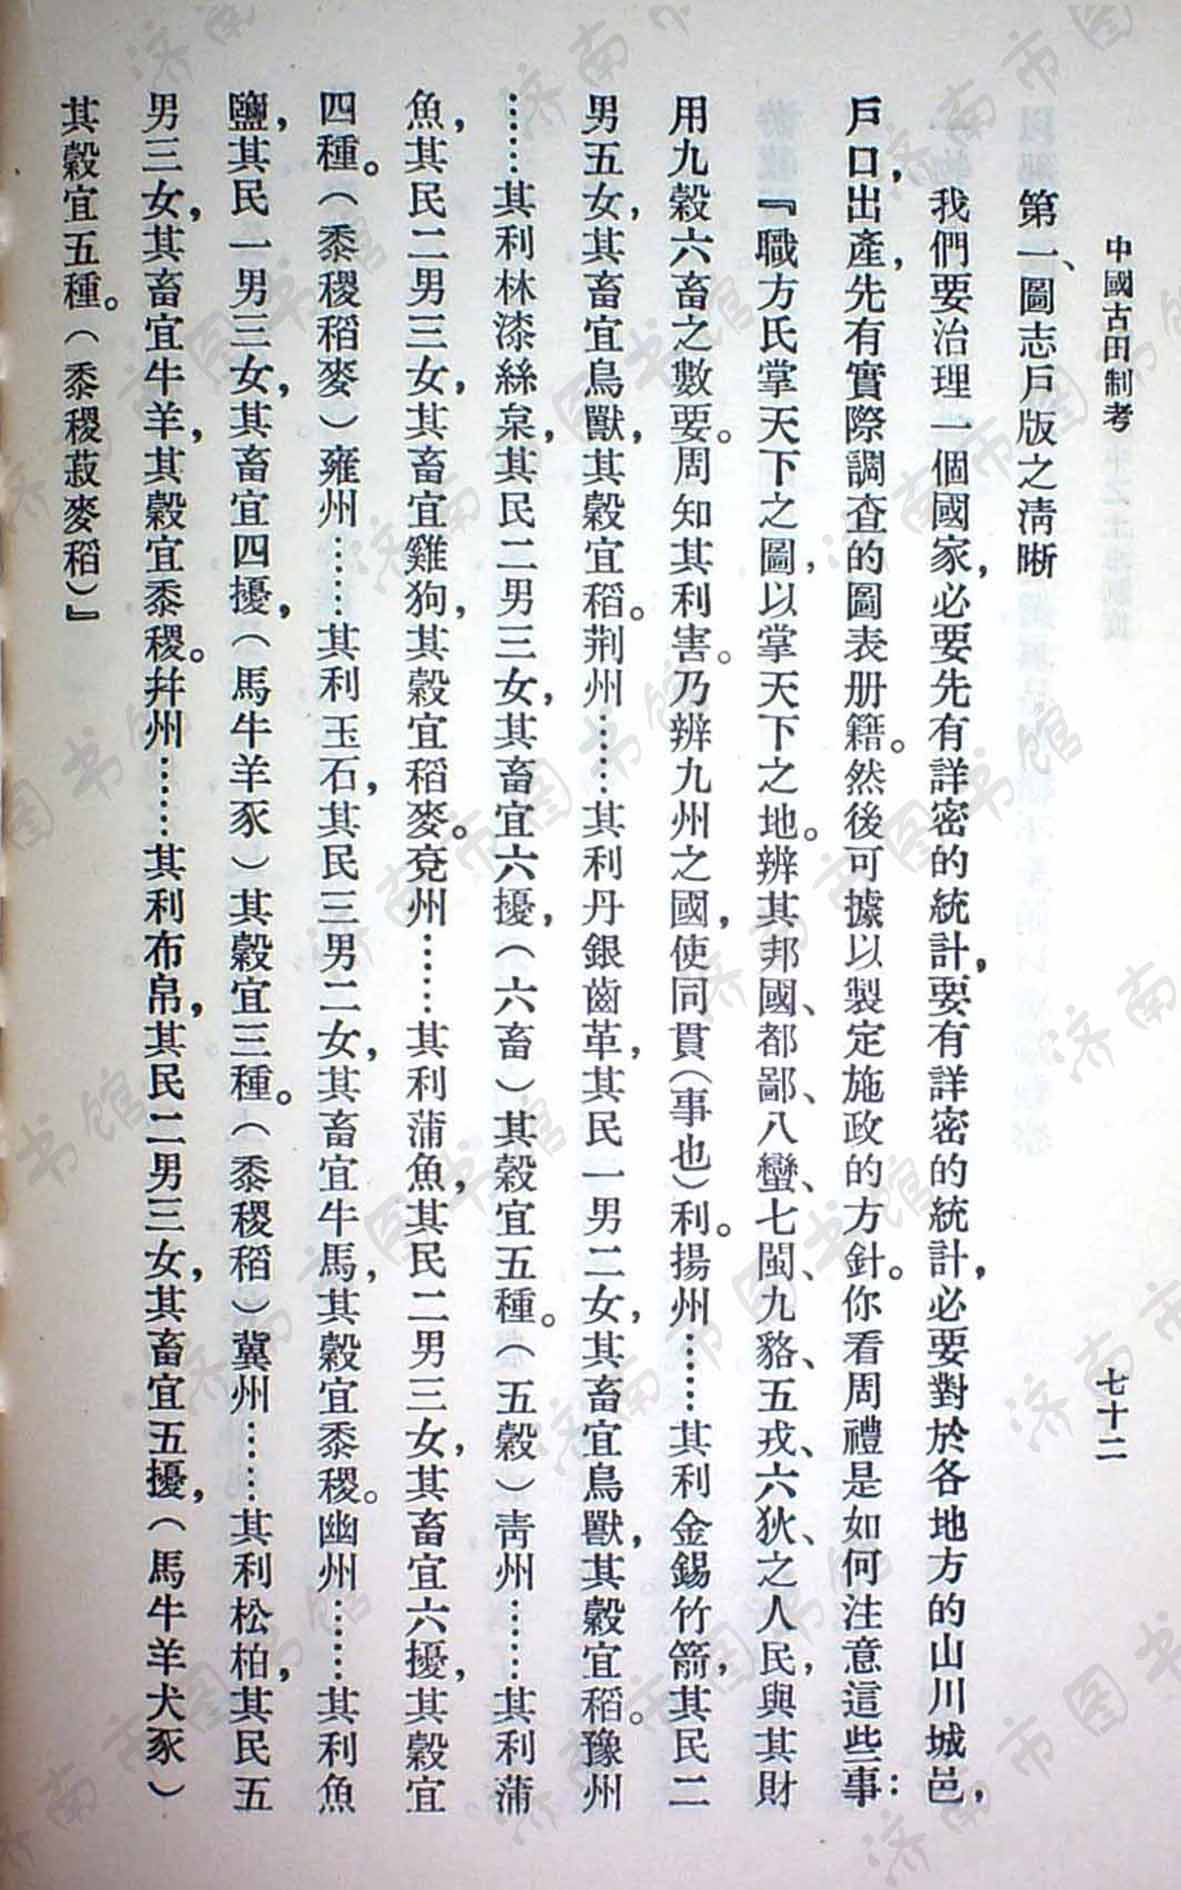 中國古田制考
七十二
第一、圖志戶版之清晰
我們要治理一個國家，必要先有詳密的統計，要有詳密的統計，必要對於各地方的山川城邑，
戶口出產，先有實際調查的圖表册籍。然後可據以製定施政的方針。你看周禮是如何注意這些事：
『職方氏掌天下之圖，以掌天下之地。辨其邦國、都鄙、八蠻、七閩、九貉、五戎、六狄、之人民，與其財
用九穀六畜之數要。周知其利害。乃辨九州之國，使同貫（事也）利。揚州……其利金錫竹箭，其民二
男五女，其畜宜鳥獸，其穀宜稻。荆州……其利丹銀齒革，其民一男二女，其畜宜鳥獸，其穀宜稻。豫州
……其利林漆絲枲，其民二男三女，其畜宜六擾，（六畜）其穀宜五種。（五穀）靑州……其利蒲
魚，其民二男三女，其畜宜雞狗，其穀宜稻麥。兗州……其利蒲魚，其民二男三女，其畜宜六擾，其穀宜
四種。（黍稷稻麥）雍州……其利玉石，其民三男二女，其畜宜牛馬，其穀宜黍稷。幽州……其利魚
鹽，其民一男三女，其畜宜四擾，（馬牛羊豕）其穀宜三種。（黍稷稻）冀州……其利松柏，其民五
男三女，其畜宜牛羊，其穀宜黍稷。幷州……其利布帛，其民二男三女，其畜宜五擾，（馬牛羊犬豕）
其穀宜五種。（黍稷菽麥稻）』
济南市图书馆